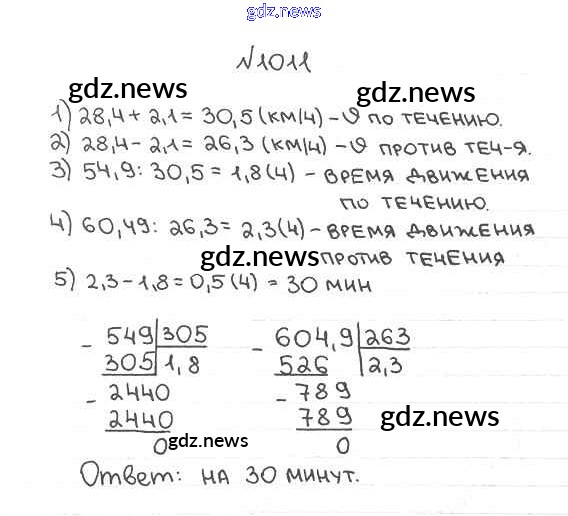 gdz.news
№1011
gdz.news gdz.news
1) 28,4 + 2,1 = 30,5 (км/ч) - υ по течению.
2) 28,4 - 2,1 = 26,3 (км/ч) - υ против теч-я.
3) 54,9 : 30,5 = 1,8 (ч) - время движения
по течению.
4) 60,49 : 26,3 = 2,3 (ч) - время движения
gdz.news против течения
5) 2,3 - 1,8 = 0,5 (ч) = 30 мин
- 549 305 - 604,9 263
305 1,8 526 2,3
- 2440 - 789
2440 789 gdz.news
0 gdz.news 0
Ответ: на 30 минут.